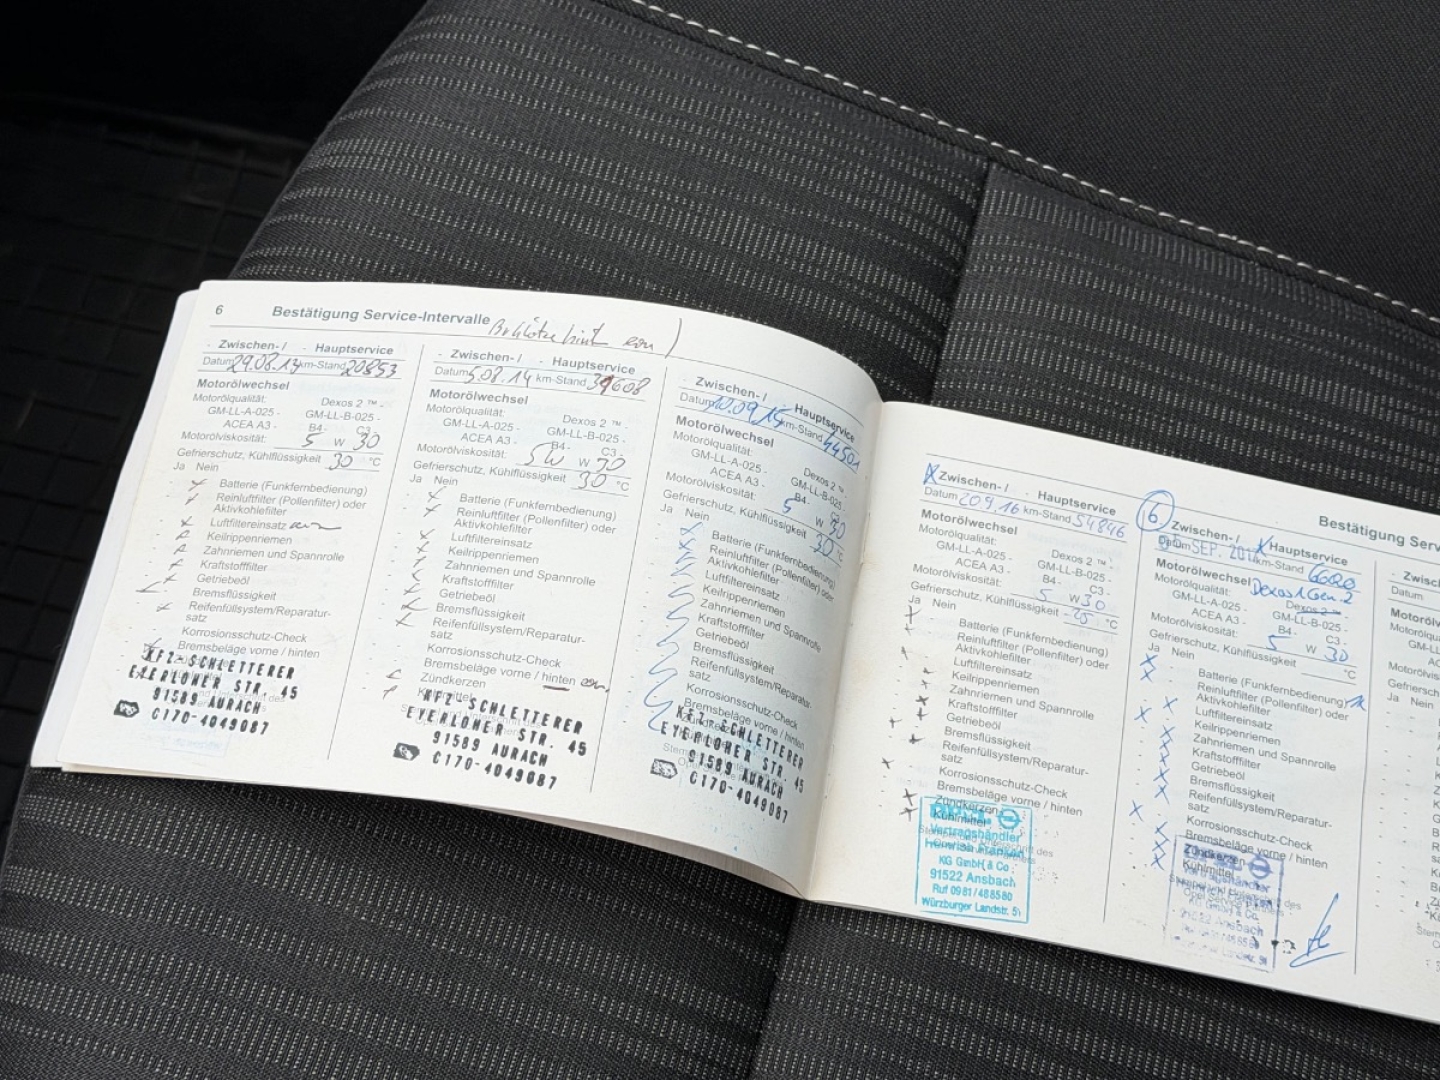 6 Bestätigung Service-Intervalle
Zwischen- / Hauptservice
Datum 29.08.13 km-Stand 20853
Motorölwechsel
Motorölqualität: Dexos 2 ™ -
GM-LL-A-025 - GM-LL-B-025 -
ACEA A3 - B4- C3 -
Motorölviskosität: 5 W 30
Gefrierschutz, Kühlflüssigkeit 30 °C
Ja Nein
Batterie (Funkfernbedienung)
Reinluftfilter (Pollenfilter) oder
Aktivkohlefilter
Luftfiltereinsatz
Keilrippenriemen
Zahnriemen und Spannrolle
Kraftstofffilter
Getriebeöl
Bremsflüssigkeit
Reifenfüllsystem/Reparatur-
satz
Korrosionsschutz-Check
Bremsbeläge vorne / hinten
KFZ-SCHLETTERER
EYERLOHER STR. 45
91589 AURACH
0170-4049087
Zwischen- / Hauptservice
Datum 5.08.14 km-Stand 39608
Motorölwechsel
Motorölqualität: Dexos 2 ™ -
GM-LL-A-025 - GM-LL-B-025 -
ACEA A3 - B4- C3 -
Motorölviskosität: 5W W 30
Gefrierschutz, Kühlflüssigkeit 30 °C
Ja Nein
Batterie (Funkfernbedienung)
Reinluftfilter (Pollenfilter) oder
Aktivkohlefilter
Luftfiltereinsatz
Keilrippenriemen
Zahnriemen und Spannrolle
Kraftstofffilter
Getriebeöl
Bremsflüssigkeit
Reifenfüllsystem/Reparatur-
satz
Korrosionsschutz-Check
Bremsbeläge vorne / hinten
Zündkerzen
Kühlmittel
KFZ-SCHLETTERER
EYERLOHER STR. 45
91589 AURACH
0170-4049087
Zwischen- / Hauptservice
Datum 10.09.15 km-Stand 44501
Motorölwechsel
Motorölqualität: Dexos 2 ™ -
GM-LL-A-025 - GM-LL-B-025 -
ACEA A3 - B4- C3 -
Motorölviskosität: 5 W 30
Gefrierschutz, Kühlflüssigkeit 30 °C
Ja Nein
Batterie (Funkfernbedienung)
Reinluftfilter (Pollenfilter) oder
Aktivkohlefilter
Luftfiltereinsatz
Keilrippenriemen
Zahnriemen und Spannrolle
Kraftstofffilter
Getriebeöl
Bremsflüssigkeit
Reifenfüllsystem/Reparatur-
satz
Korrosionsschutz-Check
Bremsbeläge vorne / hinten
KFZ-SCHLETTERER
EYERLOHER STR. 45
91589 AURACH
0170-4049087
X Zwischen- / Hauptservice
Datum 20.9.16 km-Stand 54846
Motorölwechsel
Motorölqualität: Dexos 2 ™ -
GM-LL-A-025 - GM-LL-B-025 -
ACEA A3 - B4- C3 -
Motorölviskosität: 5 W 30
Gefrierschutz, Kühlflüssigkeit °C
Ja Nein
Batterie (Funkfernbedienung)
Reinluftfilter (Pollenfilter) oder
Aktivkohlefilter
Luftfiltereinsatz
Keilrippenriemen
Zahnriemen und Spannrolle
Kraftstofffilter
Getriebeöl
Bremsflüssigkeit
Reifenfüllsystem/Reparatur-
satz
Korrosionsschutz-Check
Bremsbeläge vorne / hinten
Zündkerzen
Kühlmittel
Vertragshändler
KG GmbH & Co
91522 Ansbach
Ruf 0981/488580
Würzburger Landstr. 51
Bestätigung Serv
6 Zwischen- / X Hauptservice
Datum SEP. km-Stand
Motorölwechsel Dexos 1 Gen. 2
Motorölqualität: Dexos 2 ™
GM-LL-A-025 - GM-LL-B-025 -
ACEA A3 - B4- C3 -
Motorölviskosität: 5 W 30
Gefrierschutz, Kühlflüssigkeit °C
Ja Nein
Batterie (Funkfernbedienung)
Reinluftfilter (Pollenfilter) oder
Aktivkohlefilter
Luftfiltereinsatz
Keilrippenriemen
Zahnriemen und Spannrolle
Kraftstofffilter
Getriebeöl
Bremsflüssigkeit
Reifenfüllsystem/Reparatur-
satz
Korrosionsschutz-Check
Bremsbeläge vorne / hinten
Zündkerzen
Kühlmittel
KG GmbH & Co
91522 Ansbach
Zwisc
Datum
Ja Nein